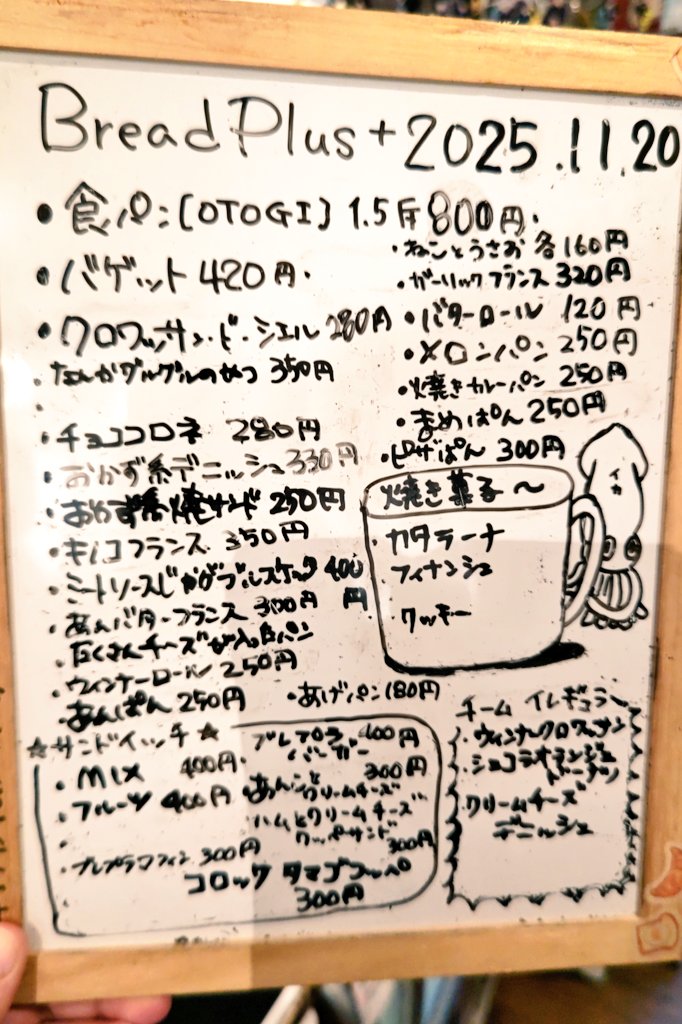 Bread Plus + 2025.11.20
・食パン[OTOGI] 1.5斤 800円.
・バゲット 420円.
・クロワッサン・ド・シエル 280円
・なんかグルグルのやつ 350円
・チョココロネ 280円
・おかず系デニッシュ 330円
・おかず系焼サンド 250円
・キノコフランス 350円
・ミートソースじゃがブルスケッタ 400円
・あんバターフランス 300円
・たくさんチーズが入ったパン
・ウィンナーロール 250円
・あんぱん 250円
・ねことうさお 各160円
・ガーリックフランス 320円
・バターロール 120円
・メロンパン 250円
・焼きカレーパン 250円
・まめぱん 250円
・ピザぱん 300円
焼き菓子〜
・カタラーナ
・フィナンシェ
・クッキー
イカ
・あげパン 180円
☆サンドイッチ☆
・MIX 400円.
・フルーツ 400円
・プレプラマフィン 300円
プレプラバーガー 400円
あんことクリームチーズ 300円
ハムとクリームチーズ
クッペサンド 300円
コロッケ タマゴコッペ
300円
チーム イレギュラー
・ウィンナークロワッサン
・ショコラオランジェ
ドーナツ
クリームチーズ
デニッシュ